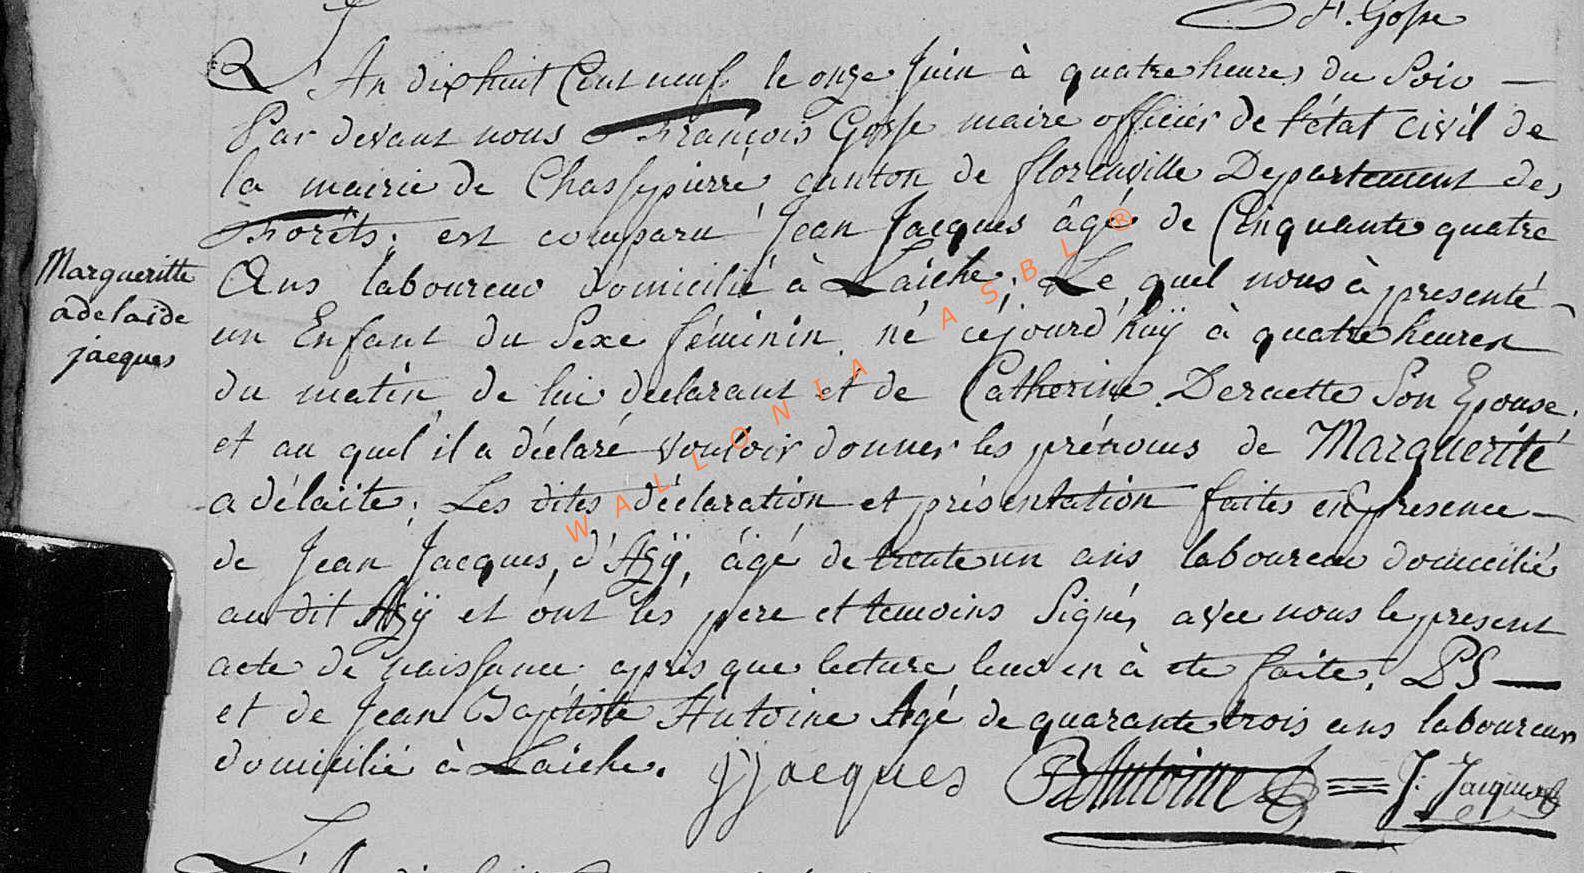 f. Gosse
L'An dixhuit Cent neuf le onze Juin à quatre heures du Soir —
Par devant nous François Gosse maire officier de l'état civil de
la mairie de Chassepierre canton de florenville Departement des
Forêts; est comparu Jean Jacques âgé de Cinquante quatre
Marguerittte
Ans laboureur domicilié à Laiche; Le quel nous à presenté
adelaide
un Enfant du Sexe féminin né cejourd'huÿ à quatre heures
jacques
du matin de lui declarant et de Catherine Deruette Son Epouse;
et au quel il a déclaré vouloir donner les prénoms de Marguerite
adélaite; Les dites déclaration et présentation faites en presence —
de Jean Jacques, d'Azÿ, âgé de trente un ans laboureur domicilié
au dit Azÿ et ont les pere et temoins Signés avec nous le present
acte de naissance après que lecture leur en à ete faite. PS —
et de Jean Baptiste Antoine Agé de quarante trois ans laboureur
domicilié à Laiche. jjacques Antoine J: Jacques
WALLONIA ASBL ®